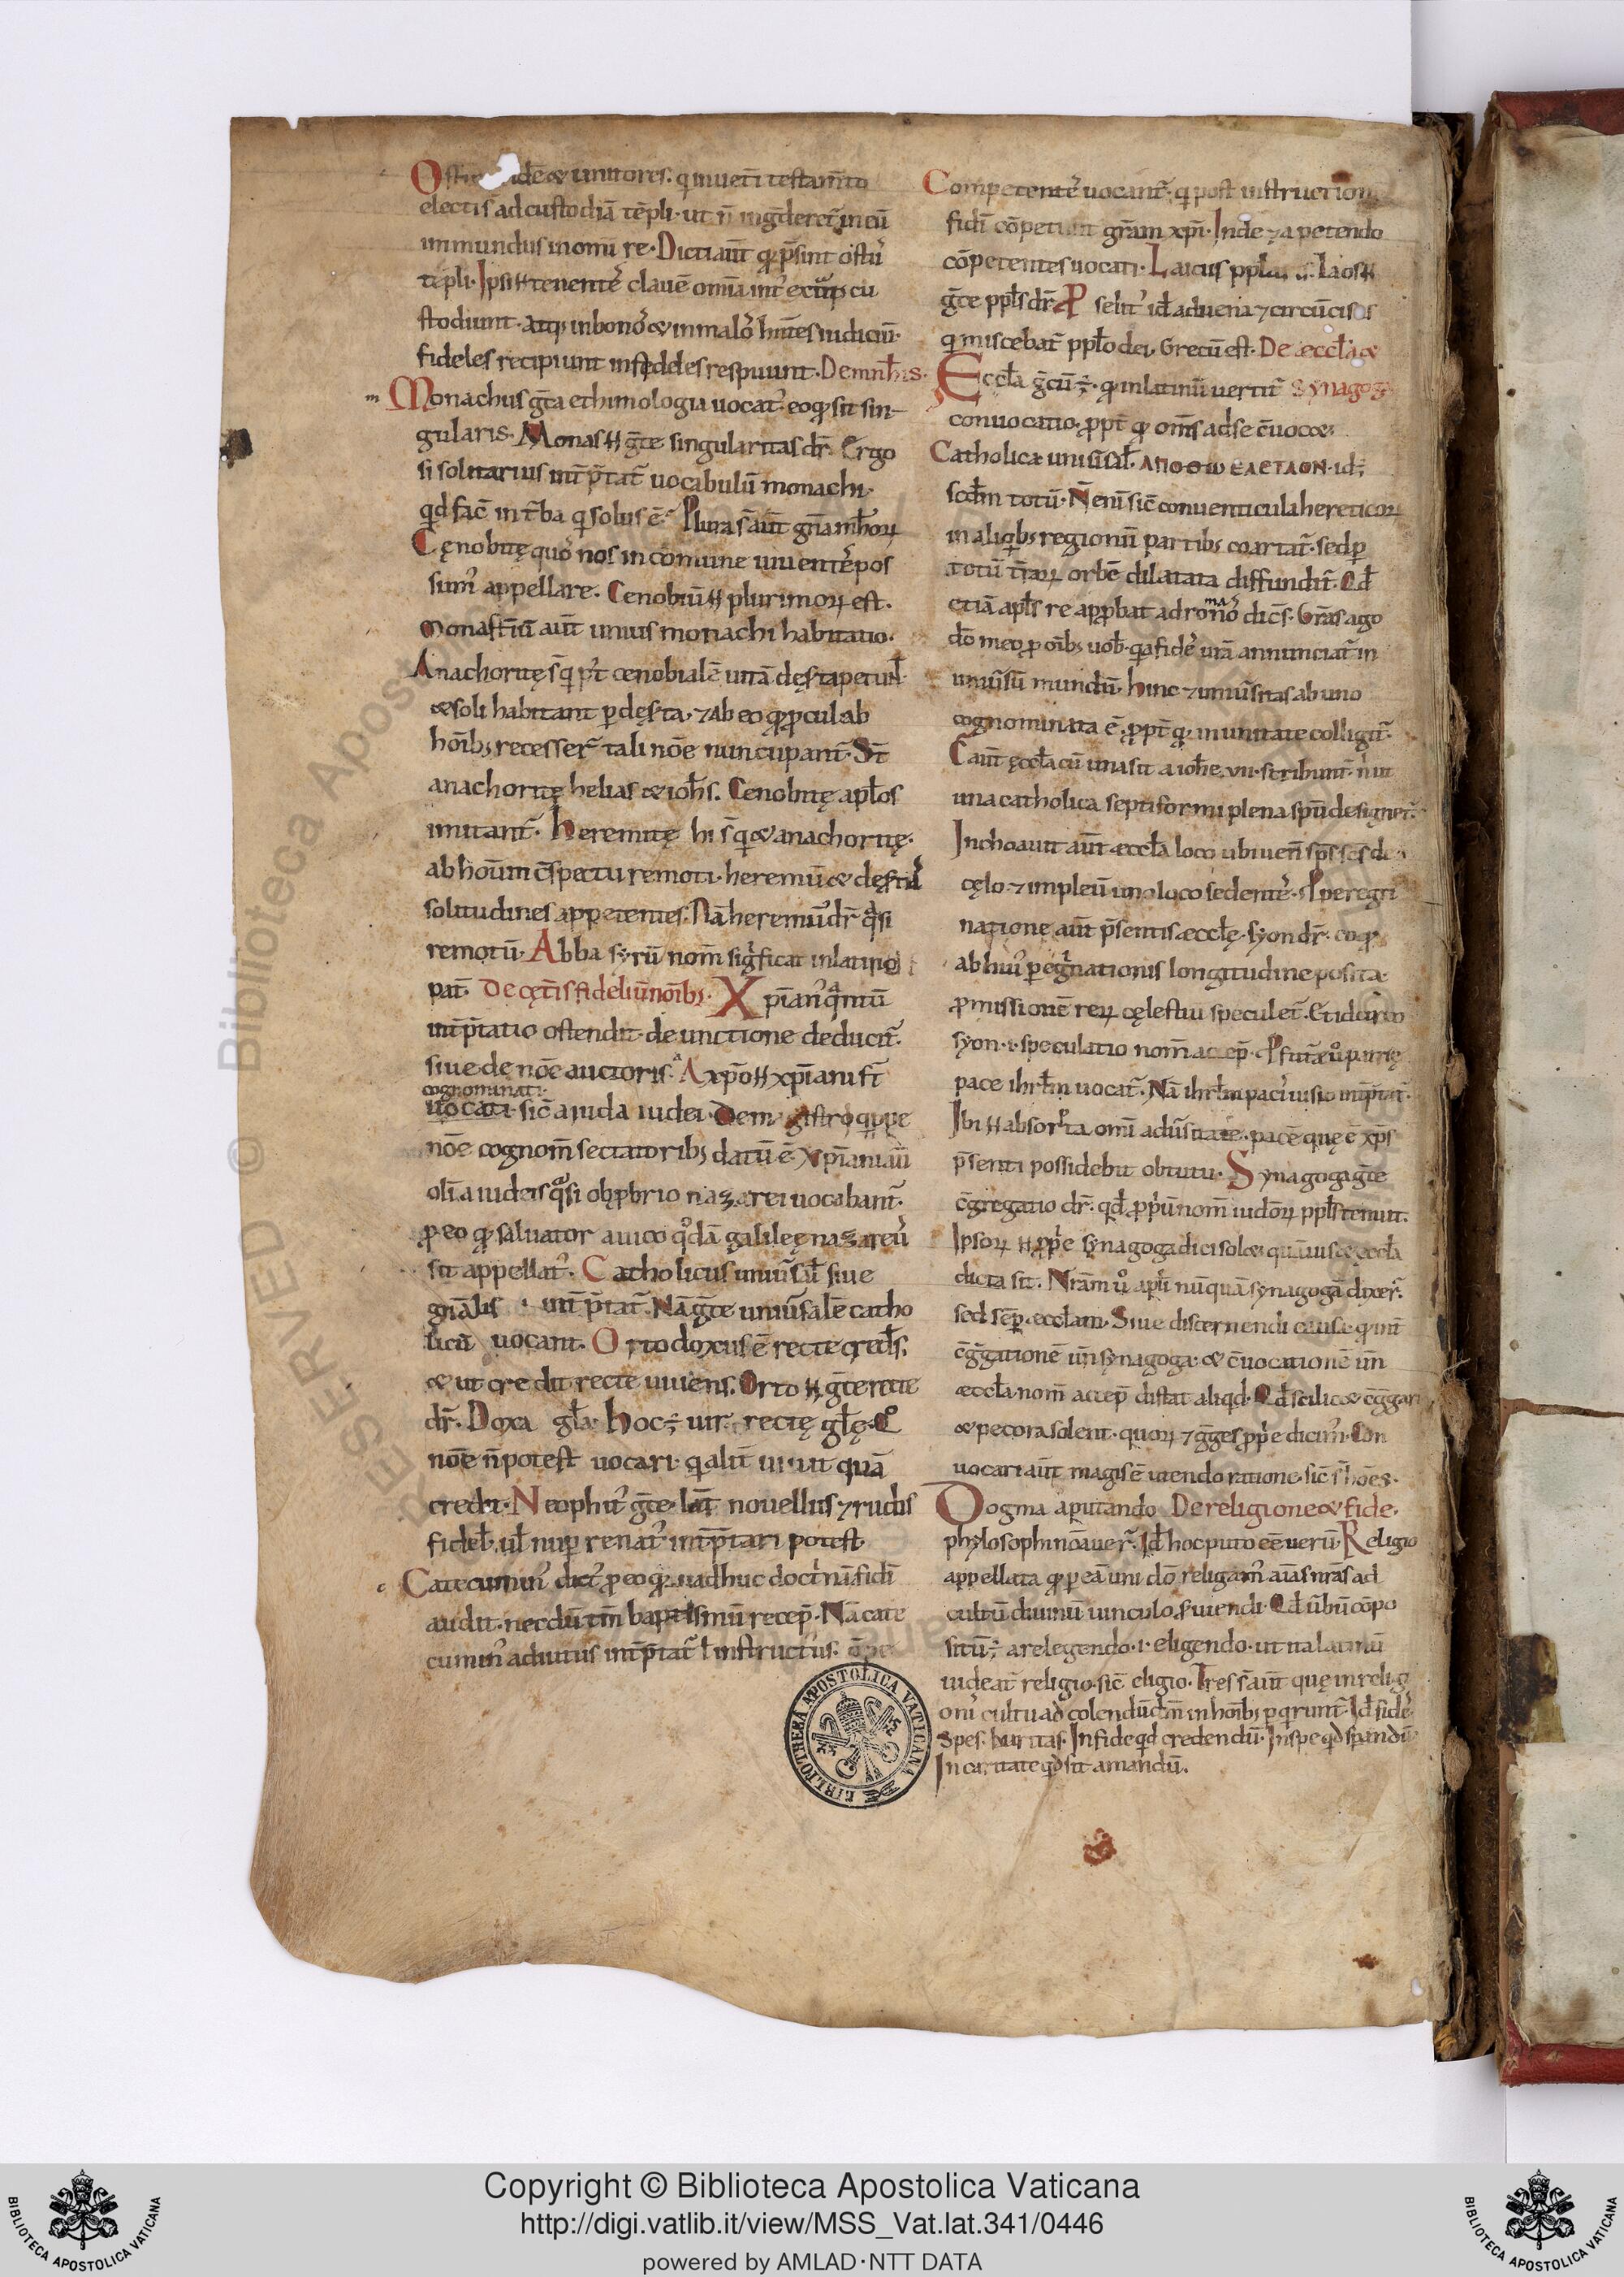 O idē & ianitores. q̄ in uet̄i testam̄to
electi s̄ ad custodiā tēpli. ut n̄ ingd̄eret̄ in eū
inmundus in om̄i re. Dicti aūt qđ p̄sint ostiis
tēpli. Ipsi .n. tenentes clauē om̄ia int̄ ext̄q̄ cu
stodiunt. atq; int̄ bonos & int̄ malos hn̄tes iudiciū.
fideles recipiunt infideles respuunt. De mnh̄is.
m Monachus g̅ca ethimologia uocat̄ eo qđ sit sin-
gularis. Monas .n. g̅ce singularitas dr̄. Ergo
si solitarius int̄p̄tat̄ uocabulū monachi.
qd fac̄ in t̄ba q̄ solus ē. Plura s̄ aūt gn̄a mh̄oꝝ
Cęnobitę quos nos in comune uiuentes pos
sum' appellare. Cenobiū .n. plurimoꝝ est.
Monast̄iū aūt unius monachi habitatio.
Anachoritę s̄ q̄ p't cenobialē uitā dęs̄ta petunt
& soli habitant p̄ dęs̄ta. ⁊ ab eo qđ p̄cul ab
hōīb; recesser̄ tali nōe nuncupant̄. St̄
anachoritę helias & ioh̄s. Cenobitę aplos
imitant̄. Heremitę hi s̄ q̄ & anachoritę.
ab hoīum c̄spectu remoti. heremū & dęs̄tas
solitudines appetentes. Nā heremū dr̄ q̄si
remotū. Abba syrū nom̄ significat in latino
pat̄. De cęt̄is fideliū nōīb;. Xp̄ian' q̄ntū
int̄p̄tatio ostendit. de unctione deducit̄.
siue de nōe auctoris. A xp̄o .n. xp̄iani st̄
cognominati.
uocati. sic̄ a iuda iudei. De magistro q̄ppe
nōe cognom̄ sectatorib; datū ē. Xp̄iani aūt
oli a iudeis q̄si obp̄brio nazarei uocabant̄.
p̄ eo qđ saluator a uico q̄dā galileę nazareus
sit appellat'. Catholicus uniu̅sal siue
gn̄alis int̄p̄tat̄. Nā g̅ce uniu̅salē catho
licū uocant. Ortodoxus ē recte cred̄s.
& ut credit recte uiuens. Orto .n. g̅ce recte
dr̄. Doxa gl̄a. Hoc ē uir rectę gl̄ę. Qo
nōe n̄ potest uocari. q̄ alit̄ uiuit quā
credit. Neophit' g̅ce. lat̄ nouellus ⁊ rudis
fidel. ul nup̄ renat' int̄p̄tari potest.
c Catecumin' dict' p̄ eo qđ adhuc doct̄inā fidī
audit. necdū tm̄ baptismū recep̄. Nā cate
cumin' auditus int̄p̄tat̄ l instructus.
Competentes uocant̄. q̄ post instruction
fidī cōpetunt gr̄am xp̄i. Inde ⁊ a petendo
cōpetentes uocati. Laicus ppl̄arīs. Laos .n.
g̅ce ppl̄s dr̄. P̄selit' id aduena ⁊ circūcisus
q̄ miscebat̄ ppl̄o dei. Grecū est. De æccl̄a &
Eccl̄a g̅cū ē. qđ in latinū uertit̄ synagoga
conuocatio. p̄pt̄ qđ om̄s ad se c̄uocet.
Catholica uniu̅sal. ΑΠΟΘΩ ΕΛΕΤΛΟΝ. id ē
scd̄m totū. N̄ eni sic̄ conuenticula hereticoꝝ
in aliq̄ib; regionū partib; coartat̄. sed p̄
totū t̄raꝝ orbē dilatata diffundit̄. Qd
etiā apl̄s re app̄bat ad romanos dic̄s. Gr̄as ago
dō meo p̄ oīb; uob. q̄a fides urā annunciat̄ in
uniu̅su mundū. Hinc ⁊ uniu̅sitas ab uno
cognominata ē. p̄pt̄ qđ in unitate colligit̄.
C aūt ęccl̄a cū una sit a ioh̄e .vii. scribunt̄. n̄ ut
una catholica septiformi plena spū designet̄.
Inchoauit aūt æccl̄a loco ubi uen̄ sp̄s sc̄s de
cęlo. ⁊ impleū uno loco sedentes. P̄ peregri
natione aūt p̄sentis æccl̄ę. syon dr̄. eo qđ
ab hui' p̄eg̅nationis longitudine posita.
p̄missionē reꝝ cęlestiū speculet̄. Et idcirco
syon .i. speculatio nom̄ accep̄. P̄ futā u̅ patrię
pace ihrl̄m uocat̄. Nā ihrl̄m pacis uisio int̄p̄tat̄.
Ibi .n. absorta om̄i adu̅sitate. pacē quę ē xp̄s
p̄senti possidebit obtutu. Synagoga g̅ce
c̄gregatio dr̄. qd p̄priū nom̄ iudeoꝝ ppl̄s tenuit.
Ipsoꝝ .n. p̄pe synagoga dici sol&. quāuis & æccl̄a
dicta sit. Nr̄am u̅ apl̄i nūquā synagogā dixer̄.
sed sēp̄ æccl̄am. Siue discernendi causa. qđ int̄
c̄g̅gationē un̄ synagoga. & c̄uocationē un̄
æccl̄a nom̄ accep̄ distat aliqd. Qd scilic& c̄g̅gari
& pecora solent. quoꝝ ⁊ g̅ges p̄pe dicim'. Con
uocari aūt magis ē utendo ratione. sic̄ s̄ hōes.
Dogma a putando De religione & fide.
phylosophi nōauer̄. Id hoc puto eē uerū. Religio
appellata qđ p̄ eā uni dō religam' aīas nr̄as ad
cultū diuinū uinculo s̄uiendi. Qd u̅bū cōpo
sitū ē a relegendo .i. eligendo. ut ita latinū
uideat̄ religio. sic̄ eligio. Tres s̄ aūt quę in relig
onis cultu ad colendū dm̄ in hoīb; p̄qrunt̄. Id fides
Spes. Karitas. In fide qd credendū. In spe qd sp̄andū
In caritate qd sit amandū.
BIBLIOTHECA APOSTOLICA VATICANA
RESERVED © Biblioteca Apostolica
Copyright © Biblioteca Apostolica Vaticana
http://digi.vatlib.it/view/MSS_Vat.lat.341/0446
powered by AMLAD·NTT DATA
BIBLIOTECA APOSTOLICA VATICANA
BIBLIOTECA APOSTOLICA VATICANA